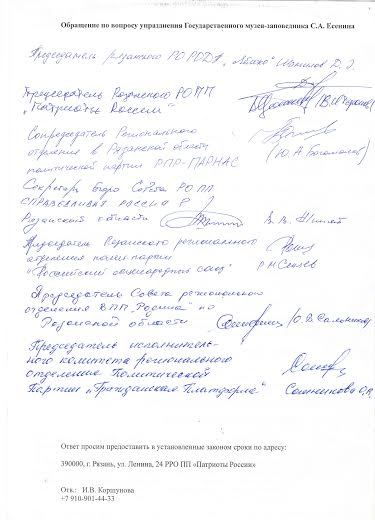 Обращение по вопросу упразднения Государственного музея-заповедника С.А. Есенина
Председатель рязанского РО РОДП „Яблоко“
Председатель Рязанского РО ПП
„Патриоты России“
Сопредседатель Регионального
отделения в Рязанской области
политической партии РПР-ПАРНАС (Ю.А.
Секретарь бюро Совета РО ПП
СПРАВЕДЛИВАЯ РОССИЯ в
Рязанской области В.В.
Председатель Рязанского регионального
отделения полит. партии
„Российский общенародный союз“
Председатель Совета регионального
отделения ВПП „Родина“ по
Рязанской области
Председатель исполнитель-
ного комитета регионального
отделения Политической
Партии „Гражданская Платформа“ Сотникова
Ответ просим предоставить в установленные законом сроки по адресу:
390000, г. Рязань, ул. Ленина, 24 РРО ПП «Патриоты России»
Отв.: И.В. Коршунова
+7 910-901-44-33